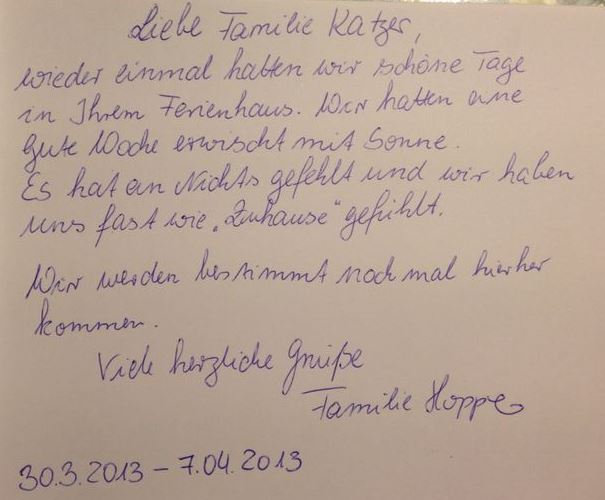 Liebe Familie Katzer,
wieder einmal hatten wir schöne Tage
in Ihrem Ferienhaus. Wir hatten eine
gute Woche erwischt mit Sonne.
Es hat an Nichts gefehlt und wir haben
uns fast wie „Zuhause“ gefühlt.
Wir werden bestimmt noch mal hierher
kommen.
Viele herzliche Grüße
Familie Hoppe
30.3.2013 – 7.04.2013